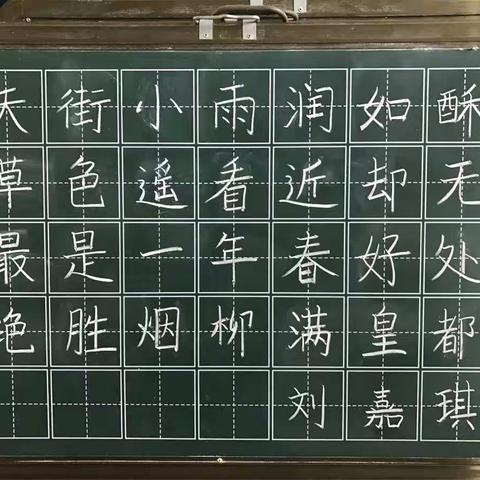 天街小雨润如酥
草色遥看近却无
最是一年春好处
绝胜烟柳满皇都
刘嘉琪